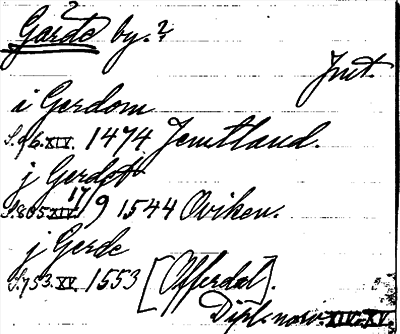 ?
Garde by.?
Jmt.
i Gerdom
S.96.XIV. 1474 Jemtland.
j Gerdot
S.805 XIV. 17/9 1544 Oviken.
j Gerde
S.753.XV. 1553 [Offerdal].
Dipl. norv. XIV-XV.